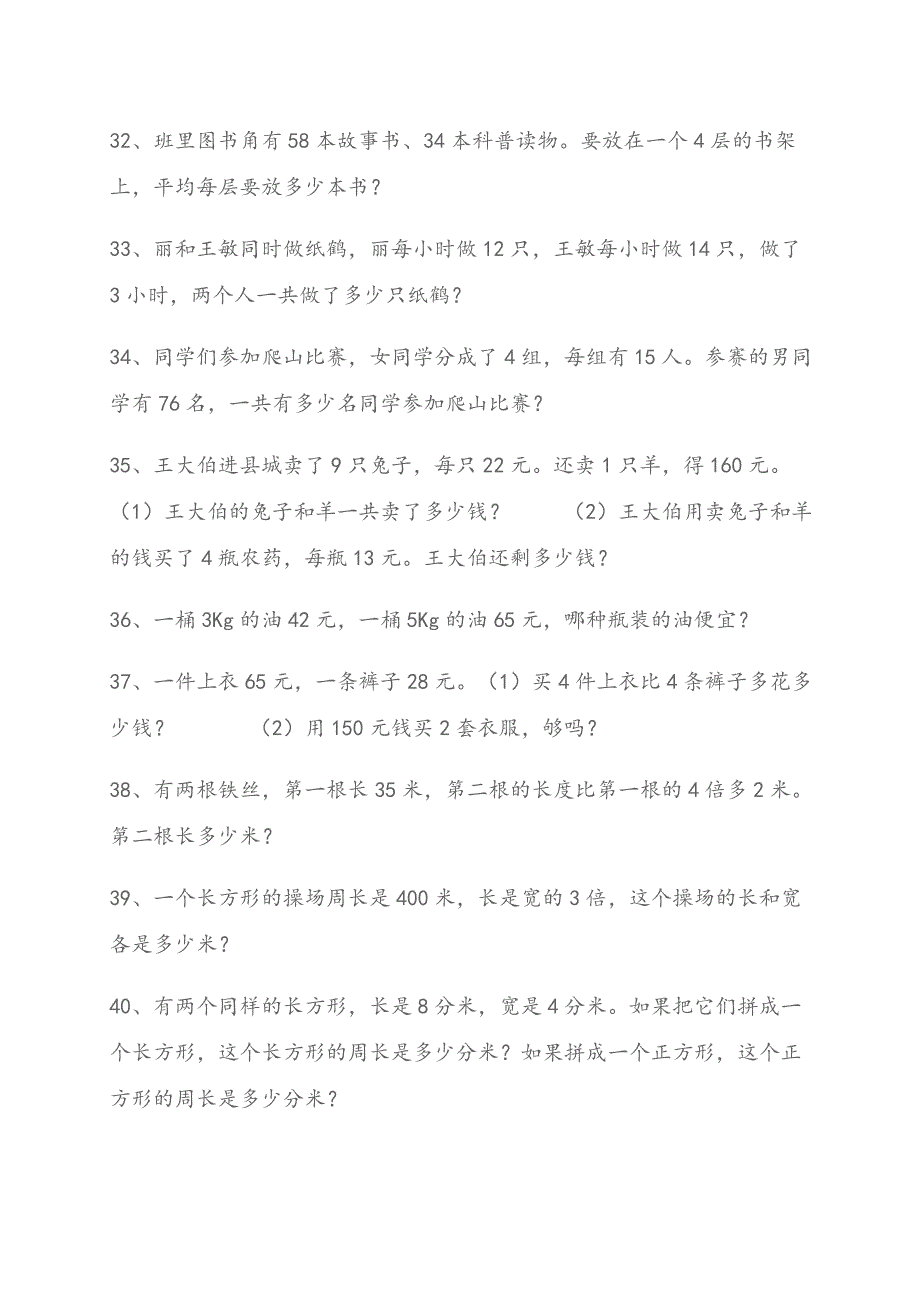 32、班里图书角有58本故事书、34本科普读物。要放在一个4层的书架
上，平均每层要放多少本书？
33、丽和王敏同时做纸鹤，丽每小时做12只，王敏每小时做14只，做了
3小时，两个人一共做了多少只纸鹤？
34、同学们参加爬山比赛，女同学分成了4组，每组有15人。参赛的男同
学有76名，一共有多少名同学参加爬山比赛？
35、王大伯进县城卖了9只兔子，每只22元。还卖1只羊，得160元。
（1）王大伯的兔子和羊一共卖了多少钱？ （2）王大伯用卖兔子和羊
的钱买了4瓶农药，每瓶13元。王大伯还剩多少钱？
36、一桶3Kg的油42元，一桶5Kg的油65元，哪种瓶装的油便宜？
37、一件上衣65元，一条裤子28元。（1）买4件上衣比4条裤子多花多
少钱？ （2）用150元钱买2套衣服，够吗？
38、有两根铁丝，第一根长35米，第二根的长度比第一根的4倍多2米。
第二根长多少米？
39、一个长方形的操场周长是400米，长是宽的3倍，这个操场的长和宽
各是多少米？
40、有两个同样的长方形，长是8分米，宽是4分米。如果把它们拼成一
个长方形，这个长方形的周长是多少分米？如果拼成一个正方形，这个正
方形的周长是多少分米？